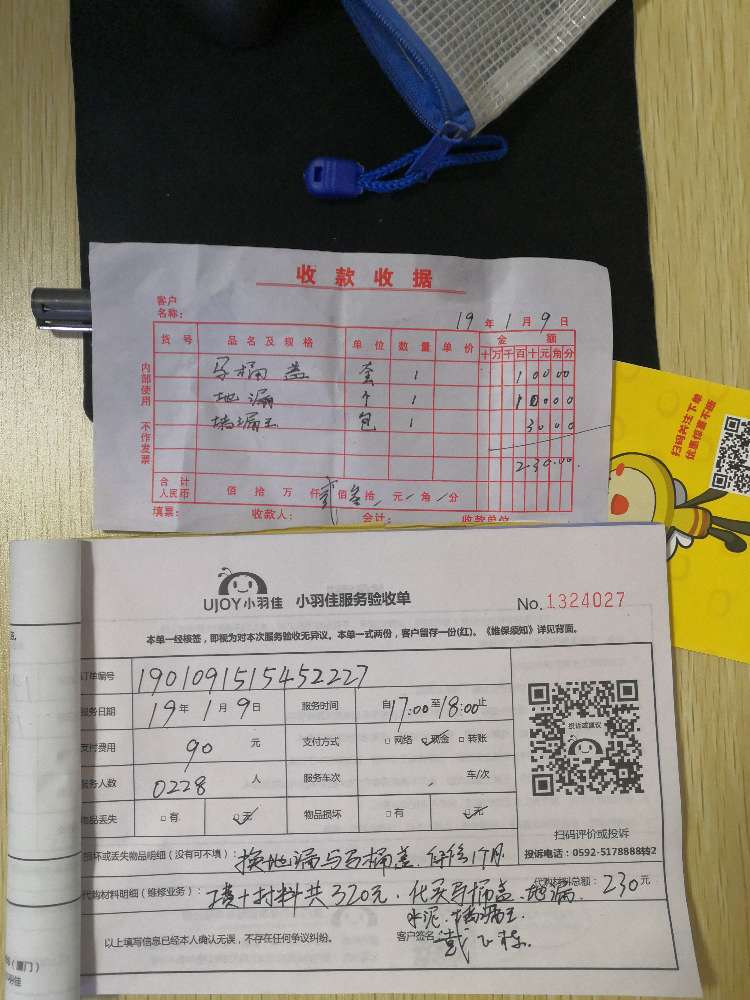 收款收据
客户
名称:
19年1月9日
货号 品名及规格 单位 数量 单价 金额
十万千百十元角分
马桶盖 套 1 10000
地漏 个 1 10000
堵漏王 包 1 3000
230.00
内部使用 不作发票
合计
人民币 佰拾万仟贰佰叁拾/元/角/分
填票: 收款人: 会计: 收款单位
扫码关注下单
优惠惊喜不断
UJOY小羽佳 小羽佳服务验收单 No. 1324027
本单一经核签,即视为对本次服务验收无异议。本单一式两份,客户留存一份(红)。《维保须知》详见背面。
订单编号 1901091515452227
服务日期 19年1月9日 服务时间 自17:00至18:00止
支付费用 90元 支付方式 □网络 ☑现金 □转账
服务人数 0228人 服务车次 车/次
物品丢失 □有 ☑无 物品损坏 □有 ☑无
投诉或建议
扫码评价或投诉
投诉电话:0592-5178888转2
损坏或丢失物品明细(没有可不填): 换地漏与马桶盖 保修1个月
代购材料明细(维修业务): 费十材料共320元.代买马桶盖.地漏. 代购材料总额: 230元
水泥.堵漏王.
以上填写信息已经本人确认无误,不存在任何争议纠纷。 客户签名: 戴飞
(厦门)
羽佳